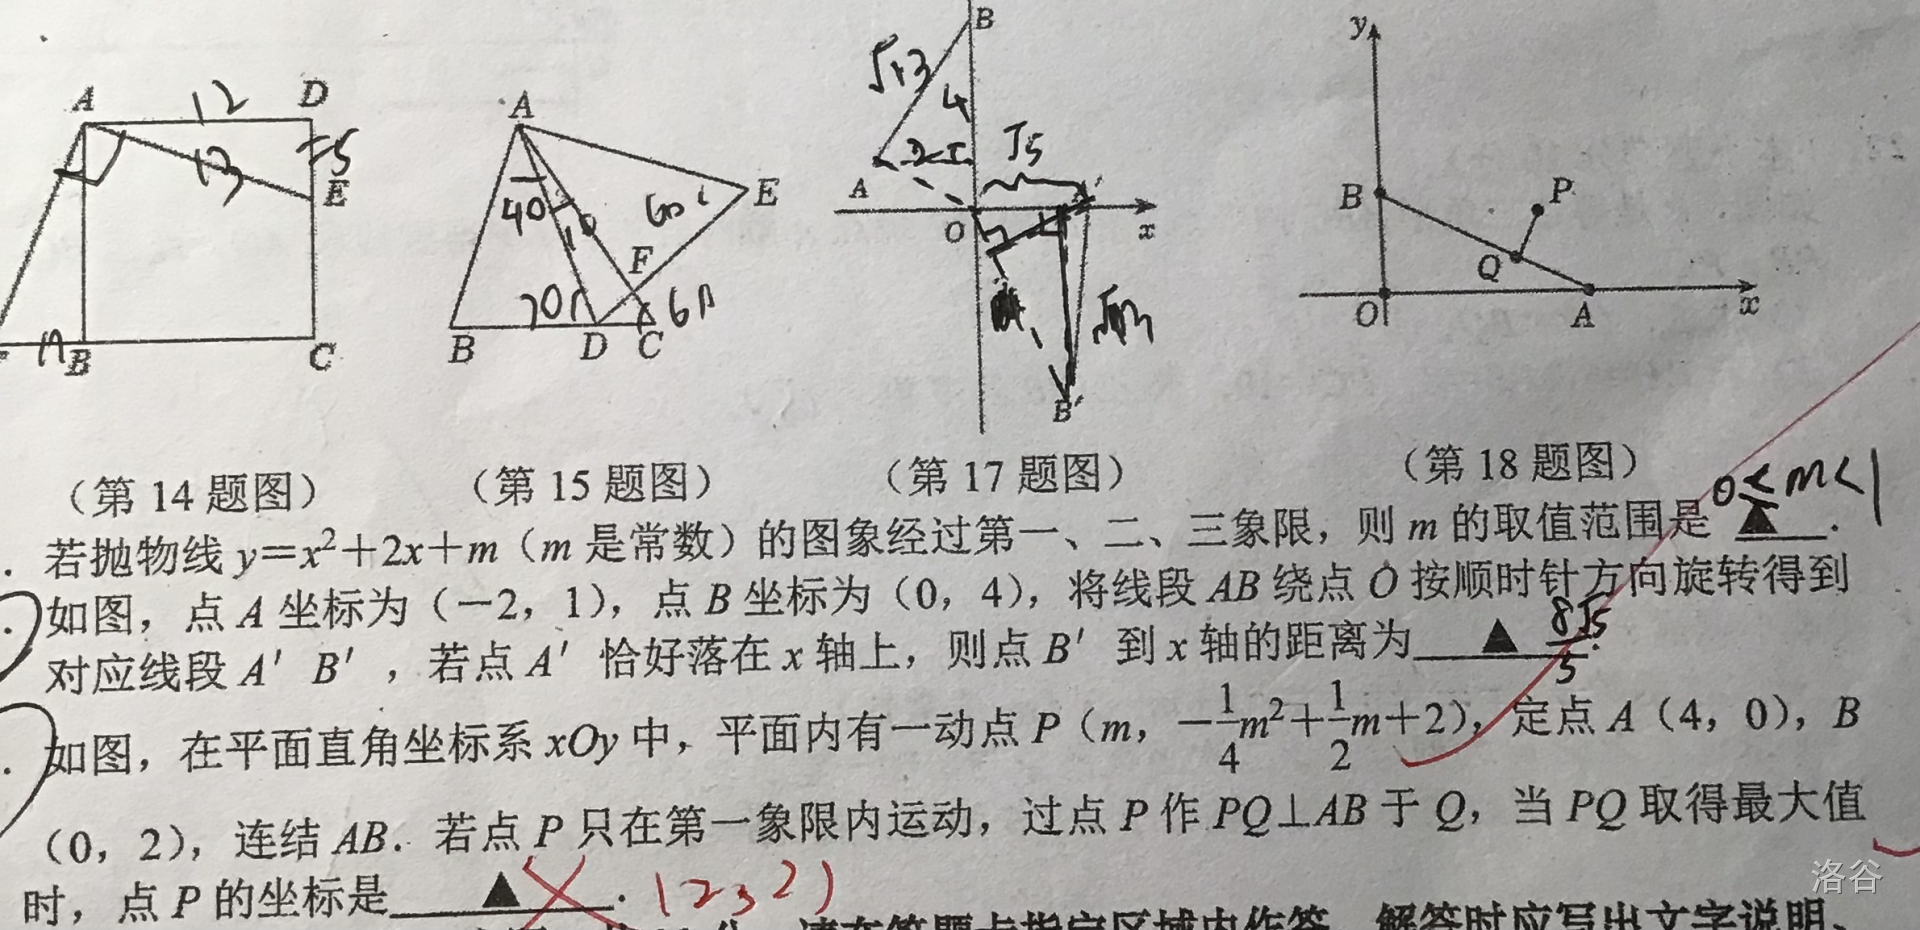 A 12 D
13 5
E
B C
A
40 10 60° E
F
70 60
B D C
B
√13 4
2 √5
A A'
O x
B'
y
B P
Q
O A x
（第 14 题图） （第 15 题图） （第 17 题图） （第 18 题图）
0<m<1
. 若抛物线 y=x²+2x+m（m 是常数）的图象经过第一、二、三象限，则 m 的取值范围是 ▲ .
. 如图，点 A 坐标为（－2，1），点 B 坐标为（0，4），将线段 AB 绕点 O 按顺时针方向旋转得到
对应线段 A′ B′ ，若点 A′ 恰好落在 x 轴上，则点 B′ 到 x 轴的距离为 ▲ 8√5/5 .
. 如图，在平面直角坐标系 xOy 中，平面内有一动点 P（m，－1/4m²+1/2m+2），定点 A（4，0），B
（0，2），连结 AB．若点 P 只在第一象限内运动，过点 P 作 PQ⊥AB 于 Q，当 PQ 取得最大值
时，点 P 的坐标是 ▲ . (2,2)
请在答题卡指定区域内作答，解答时应写出文字说明、
洛谷